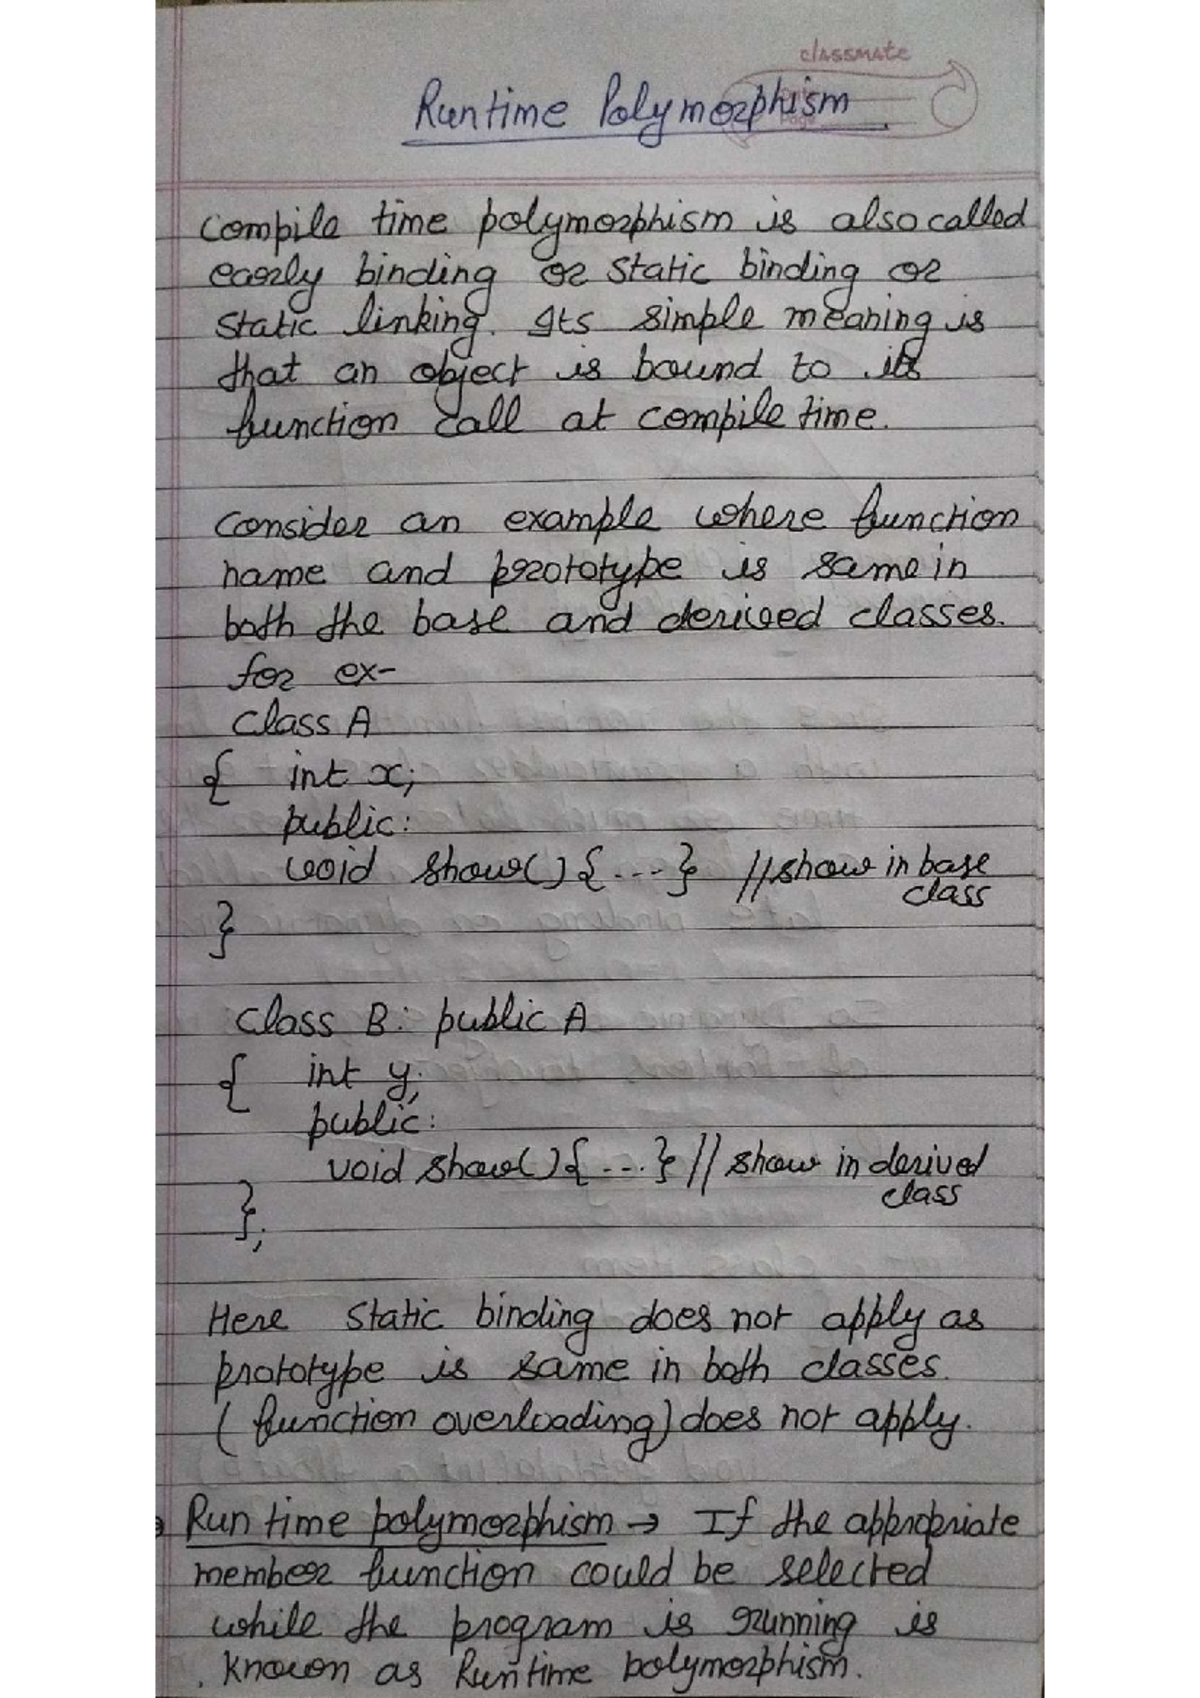 classmate
Date
Page
Runtime Polymorphism
Compile time polymorphism is also called
early binding or static binding or
static linking. Its simple meaning is
that an object is bound to its
function call at compile time.
Consider an example where function
name and prototype is same in
both the base and derived classes.
for ex-
class A
{ int x;
public:
void show() { ... } //show in base
class
}
class B: public A
{ int y;
public:
void show() { ... } // show in derived
class
};
Here static binding does not apply as
prototype is same in both classes.
(function overloading) does not apply.
Run time polymorphism → If the appropriate
member function could be selected
while the program is running is
known as Runtime polymorphism.